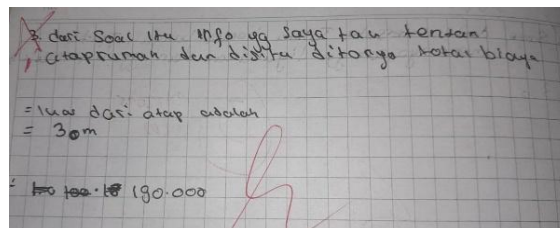 3. dari Soal itu info yg saya tau tentan
atap rumah dan disitu ditanya total biaya
= luas dari atap adalah
= 30m
190.000